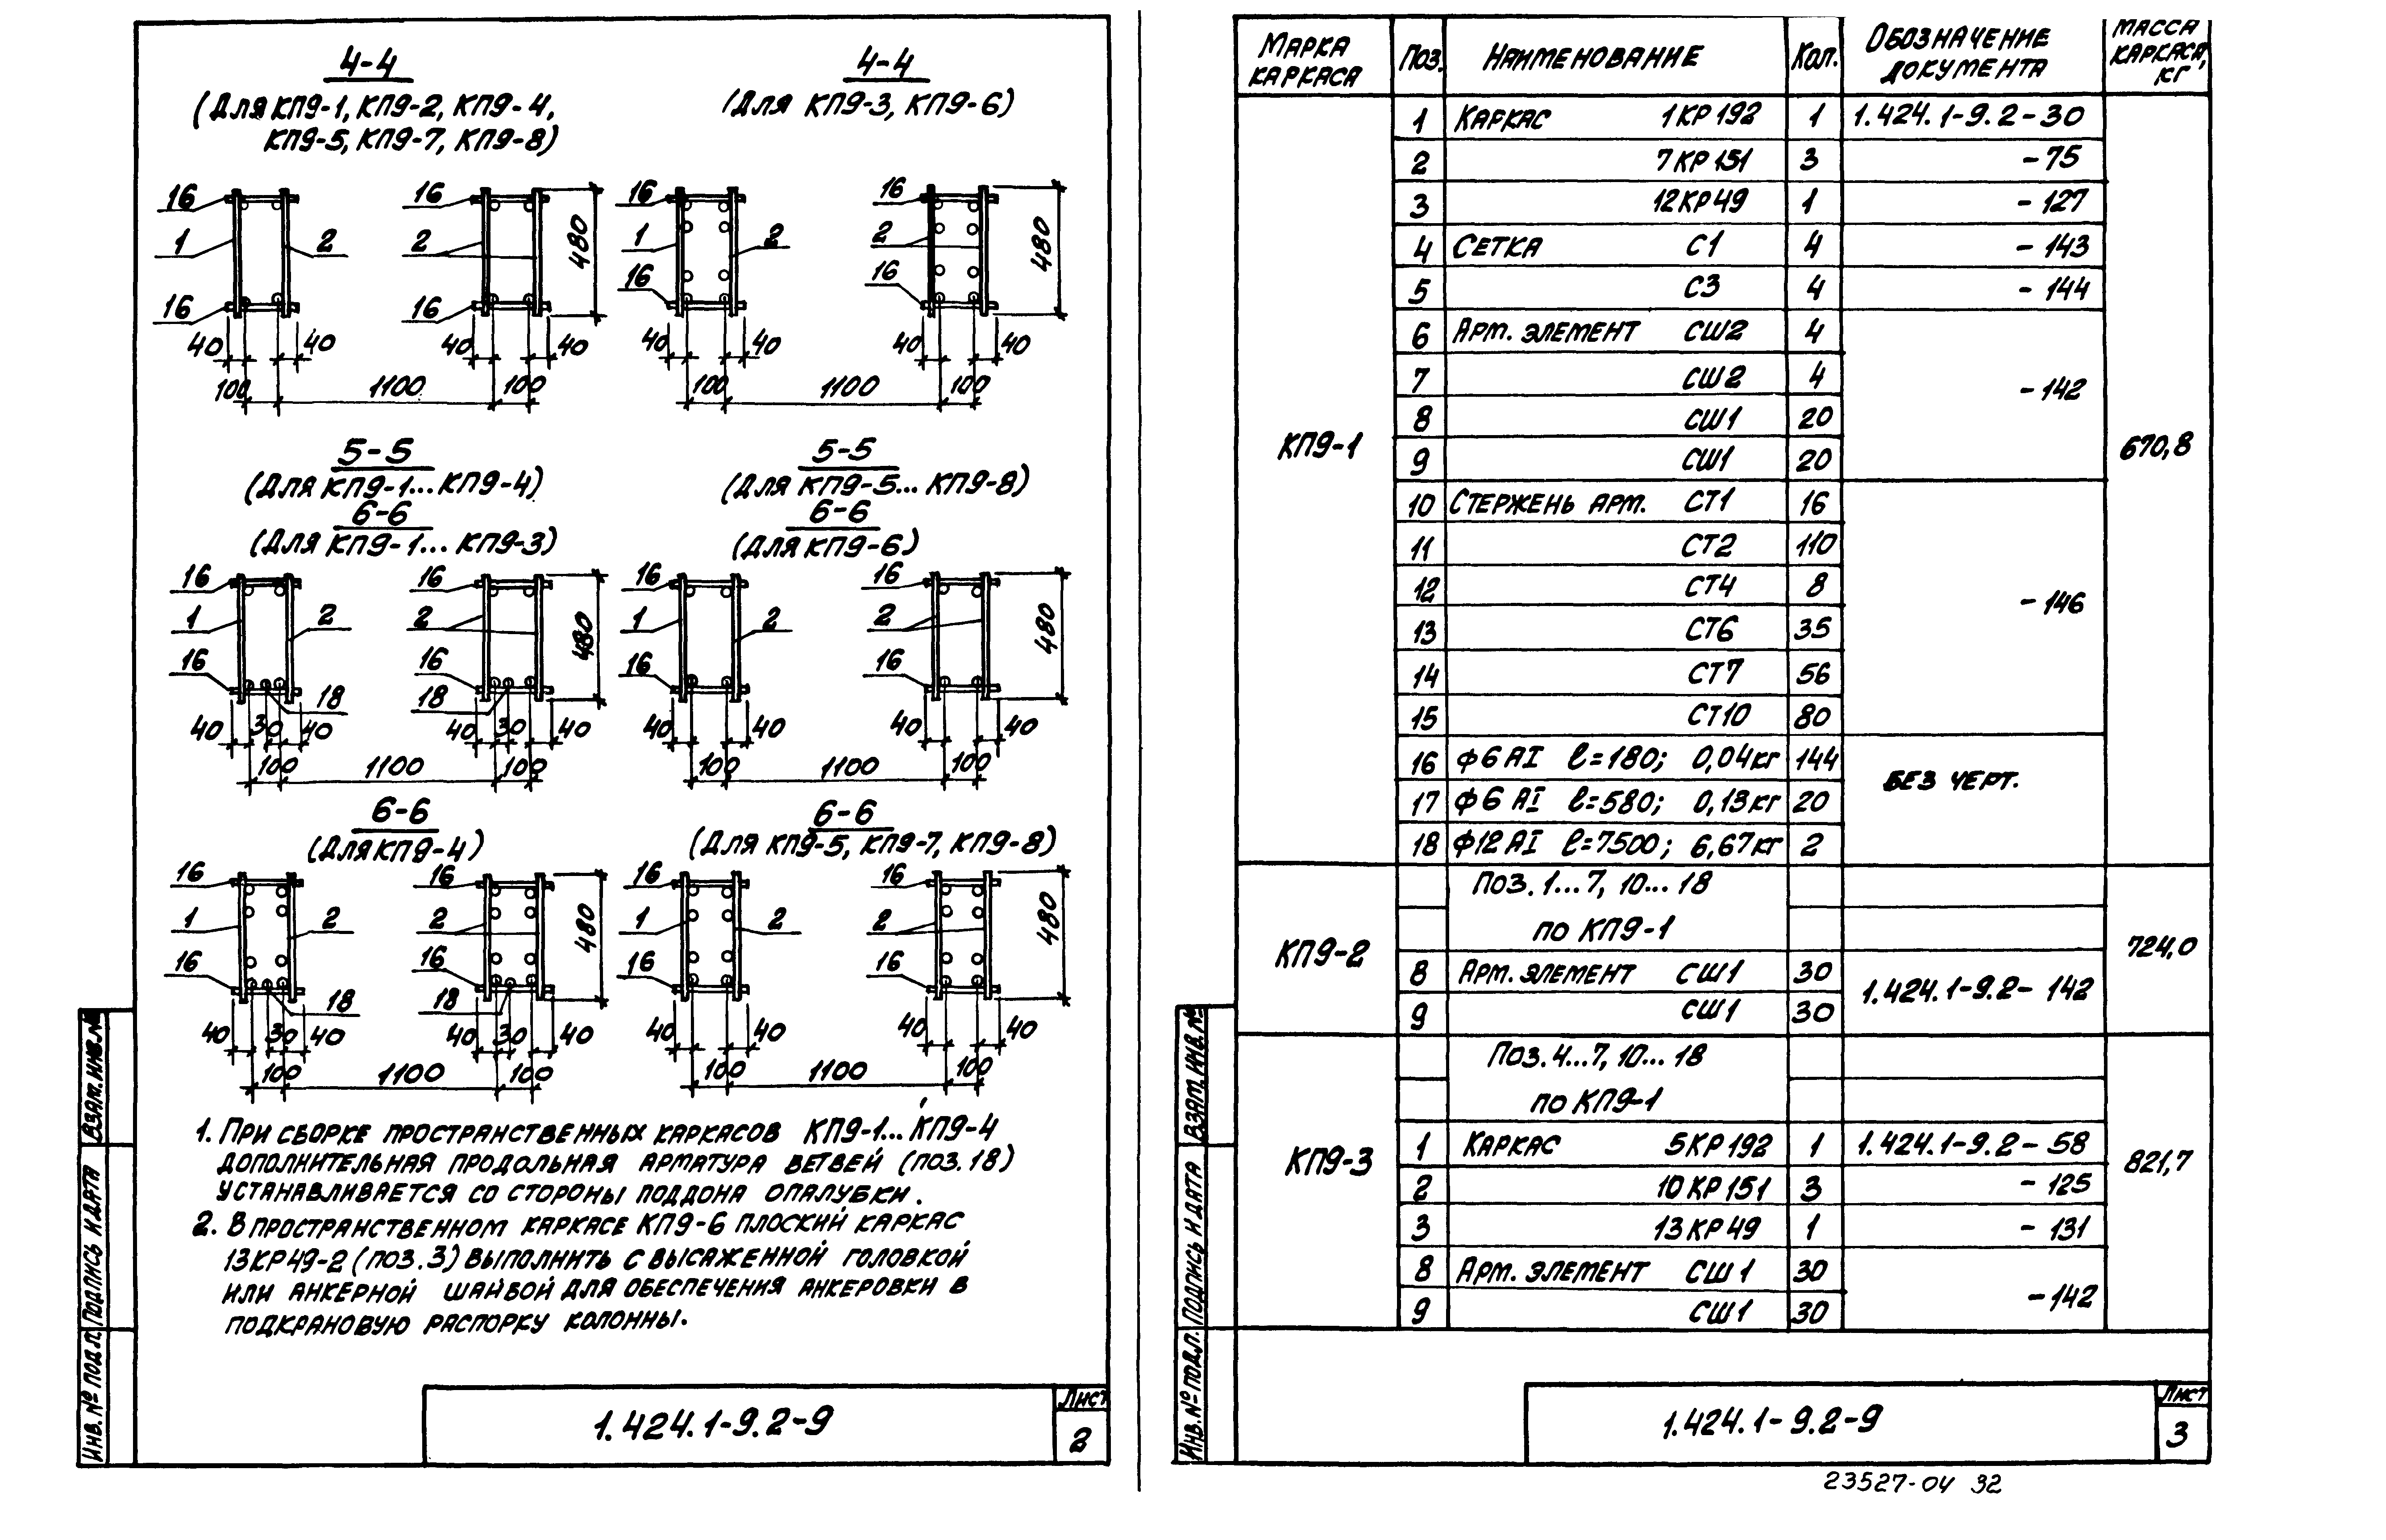 4-4
(Для КП9-1, КП9-2, КП9-4,
КП9-5, КП9-7, КП9-8)
4-4
(Для КП9-3, КП9-6)
16 16 16 16
1 2 2 1 2 2
480 480
16 16 16 16
40 40 40 40 40 40 40 40
100 1100 100 100 1100 100
5-5
(Для КП9-1... КП9-4)
6-6
(Для КП9-1... КП9-3)
5-5
(Для КП9-5... КП9-8)
6-6
(Для КП9-6)
16 16 16 16
1 2 2 1 2 2
480 480
16 16 16 16
18 18
40 30 40 40 30 40 40 40 40 40
100 1100 100 100 1100 100
6-6
(Для КП9-4)
6-6
(Для КП9-5, КП9-7, КП9-8)
16 16 16 16
1 2 2 1 2 2
480 480
16 16 16 16
18 18
40 30 40 40 30 40 40 40 40 40
100 1100 100 100 1100 100
1. При сборке пространственных каркасов КП9-1... КП9-4
дополнительная продольная арматура ветвей (поз. 18)
устанавливается со стороны поддона опалубки.
2. В пространственном каркасе КП9-6 плоский каркас
13КР49-2 (поз. 3) выполнить с высаженной головкой
или анкерной шайбой для обеспечения анкеровки в
подкрановую распорку колонны.
Инв. № подл. Подпись и дата Взам. инв. №
1.424.1-9.2-9
Лист
2
Марка каркаса Поз. Наименование Кол. Обозначение документа Масса каркаса, кг
КП9-1 670,8
1 Каркас 1КР192 1 1.424.1-9.2-30
2 7КР151 3 -75
3 12КР49 1 -127
4 Сетка С1 4 -143
5 С3 4 -144
6 Арм. элемент СШ2 4
7 СШ2 4 -142
8 СШ1 20
9 СШ1 20
10 Стержень арм. СТ1 16
11 СТ2 110
12 СТ4 8 -146
13 СТ6 35
14 СТ7 56
15 СТ10 80
16 ф6АI ℓ=180; 0,04кг 144 Без черт.
17 ф6АI ℓ=580; 0,13кг 20
18 ф12АI ℓ=7500; 6,67кг 2
КП9-2 724,0
Поз. 1...7, 10... 18
по КП9-1
8 Арм. элемент СШ1 30 1.424.1-9.2-142
9 СШ1 30
КП9-3 821,7
Поз. 4...7, 10... 18
по КП9-1
1 Каркас 5КР192 1 1.424.1-9.2-58
2 10КР151 3 -125
3 13КР49 1 -131
8 Арм. элемент СШ1 30 -142
9 СШ1 30
Инв. № подл. Подпись и дата Взам. инв. №
1.424.1-9.2-9
Лист
3
23527-04 32